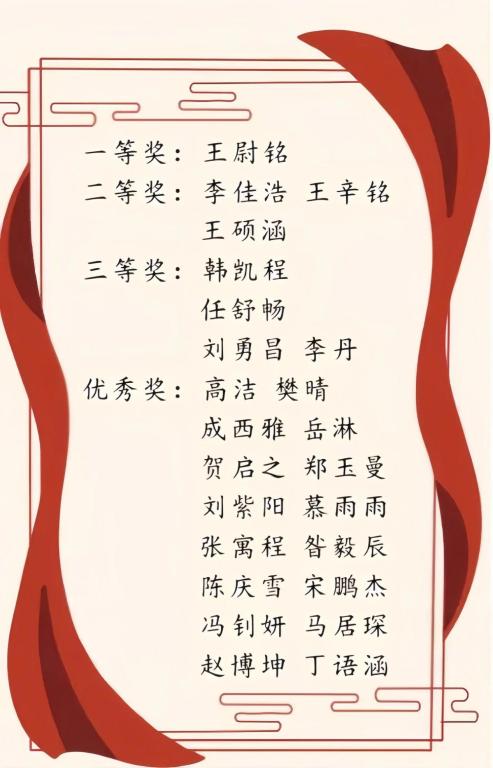 一等奖：王尉铭
二等奖：李佳浩 王辛铭
王硕涵
三等奖：韩凯程
任舒畅
刘勇昌 李丹
优秀奖：高洁 樊晴
成西雅 岳淋
贺启之 郑玉曼
刘紫阳 慕雨雨
张寓程 昝毅辰
陈庆雪 宋鹏杰
冯钊妍 马居琛
赵博坤 丁语涵